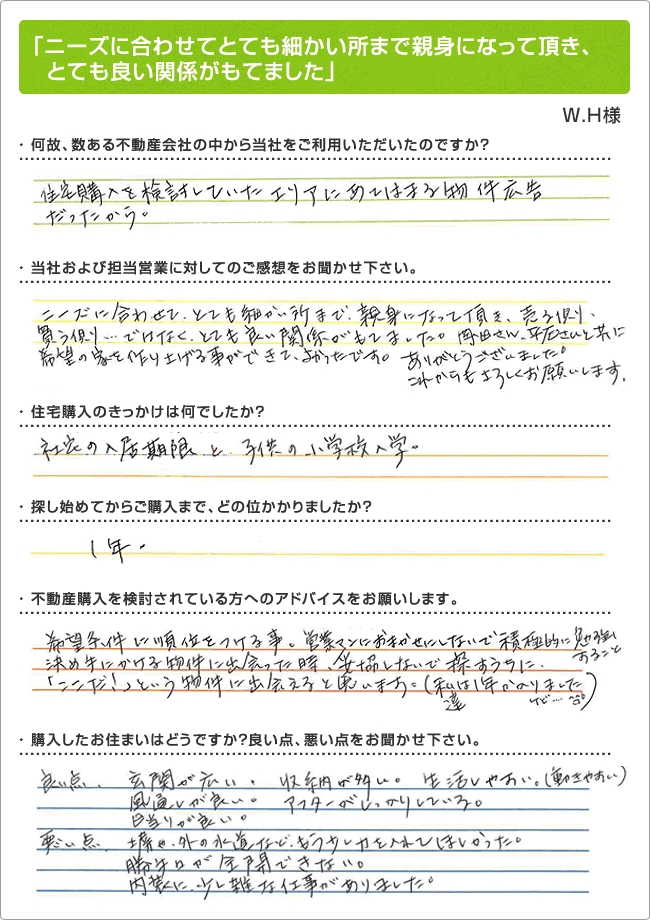 「ニーズに合わせてとても細かい所まで親身になって頂き、
とても良い関係がもてました」
W.H様
・ 何故、数ある不動産会社の中から当社をご利用いただいたのですか?
住宅購入を検討していたエリアにあてはまる物件広告
だったから。
・ 当社および担当営業に対してのご感想をお聞かせ下さい。
ニーズに合わせて、とても細かい所まで、親身になって頂き、売る側り、
買う側り…ではなく、とても良い関係がもてました。岡田さん、平石さんと共に
希望の家を作り上げる事ができて、よかったです。ありがとうございました。
これからもよろしくお願いします。
・ 住宅購入のきっかけは何でしたか?
社宅の入居期限と、子供の小学校入学。
・ 探し始めてからご購入まで、どの位かかりましたか?
1年。
・ 不動産購入を検討されている方へのアドバイスをお願いします。
希望条件に順位をつける事。営業マンにおまかせにしないで積極的に勉強
すること
決め手にかける物件に出会った時、妥協しないで探すうちに、
「ここだ!」という物件に出会えると思います。(私達は1年かかりました
けど…)
・ 購入したお住まいはどうですか?良い点、悪い点をお聞かせ下さい。
良い点、 玄関が広い。 収納が多い。 生活しやすい。(動きやすい)
風通しが良い。 アフターがしっかりしている。
日当りが良い。
悪い点、 土塀や、外の水道など、もう少し力を入れてほしかった。
勝手口が全開できない。
内装に、少し雑な仕事がありました。